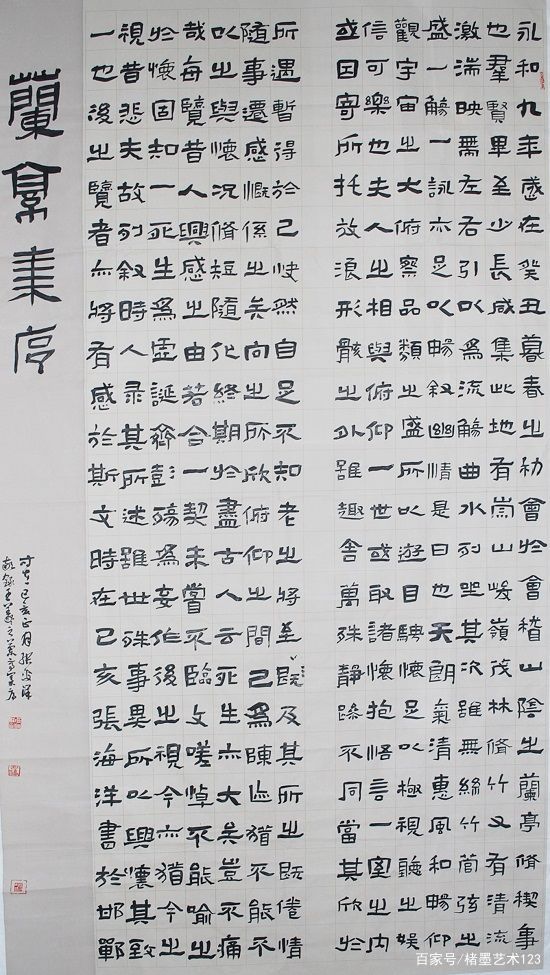 永和九年歲在癸丑暮春之初會於會稽山陰之蘭亭脩禊事
也羣賢畢至少長咸集此地有崇山峻嶺茂林脩竹又有清流
激湍映帶左右引以為流觴曲水列坐其次雖無絲竹管弦之
盛一觴一詠亦足以暢敘幽情是日也天朗氣清惠風和暢仰
觀宇宙之大俯察品類之盛所以遊目騁懷足以極視聽之娛
信可樂也夫人之相與俯仰一世或取諸懷抱悟言一室之內
或因寄所托放浪形骸之外雖趣舍萬殊靜躁不同當其欣於
所遇暫得於己快然自足不知老之將至既及其所之既倦情
隨事遷感慨係之矣向之所欣俯仰之間已為陳跡猶不能不
以之興懷況脩短隨化終期於盡古人云死生亦大矣豈不痛
哉每覽昔人興感之由若合一契未嘗不臨文嗟悼不能喻之
於懷固知一死生為虛誕齊彭殤為妄作後之視今亦猶今之
視昔悲夫故列敘時人錄其所述雖世殊事異所以興懷其致
一也後之覽者亦將有感於斯文時在己亥張海洋書於邯鄲
蘭亭集序
己亥正月張海洋
敬錄王羲之蘭亭集序
百家号/楮墨艺术123